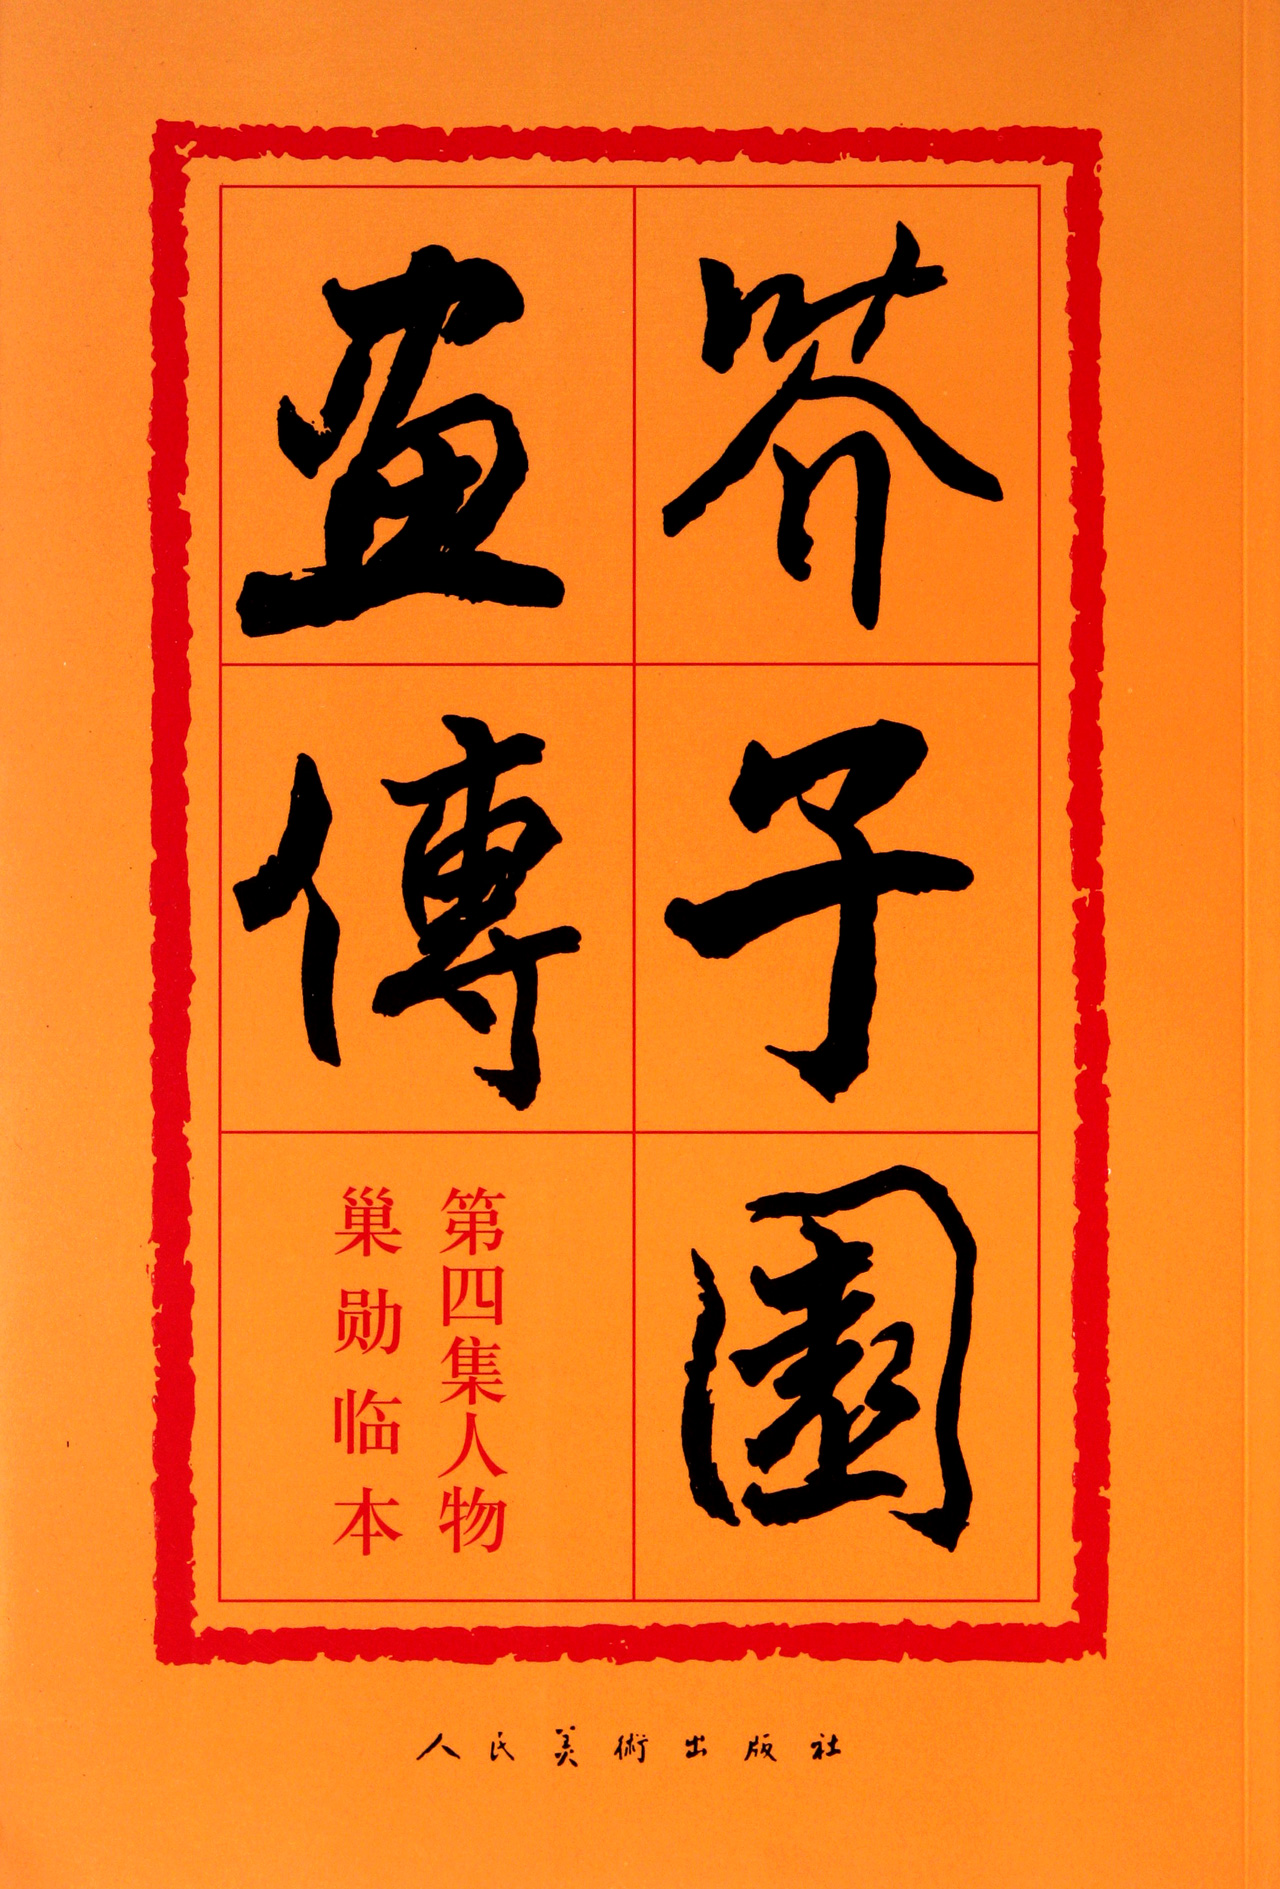 芥子園
画傳
第四集人物
巢勋临本
人民美術出版社